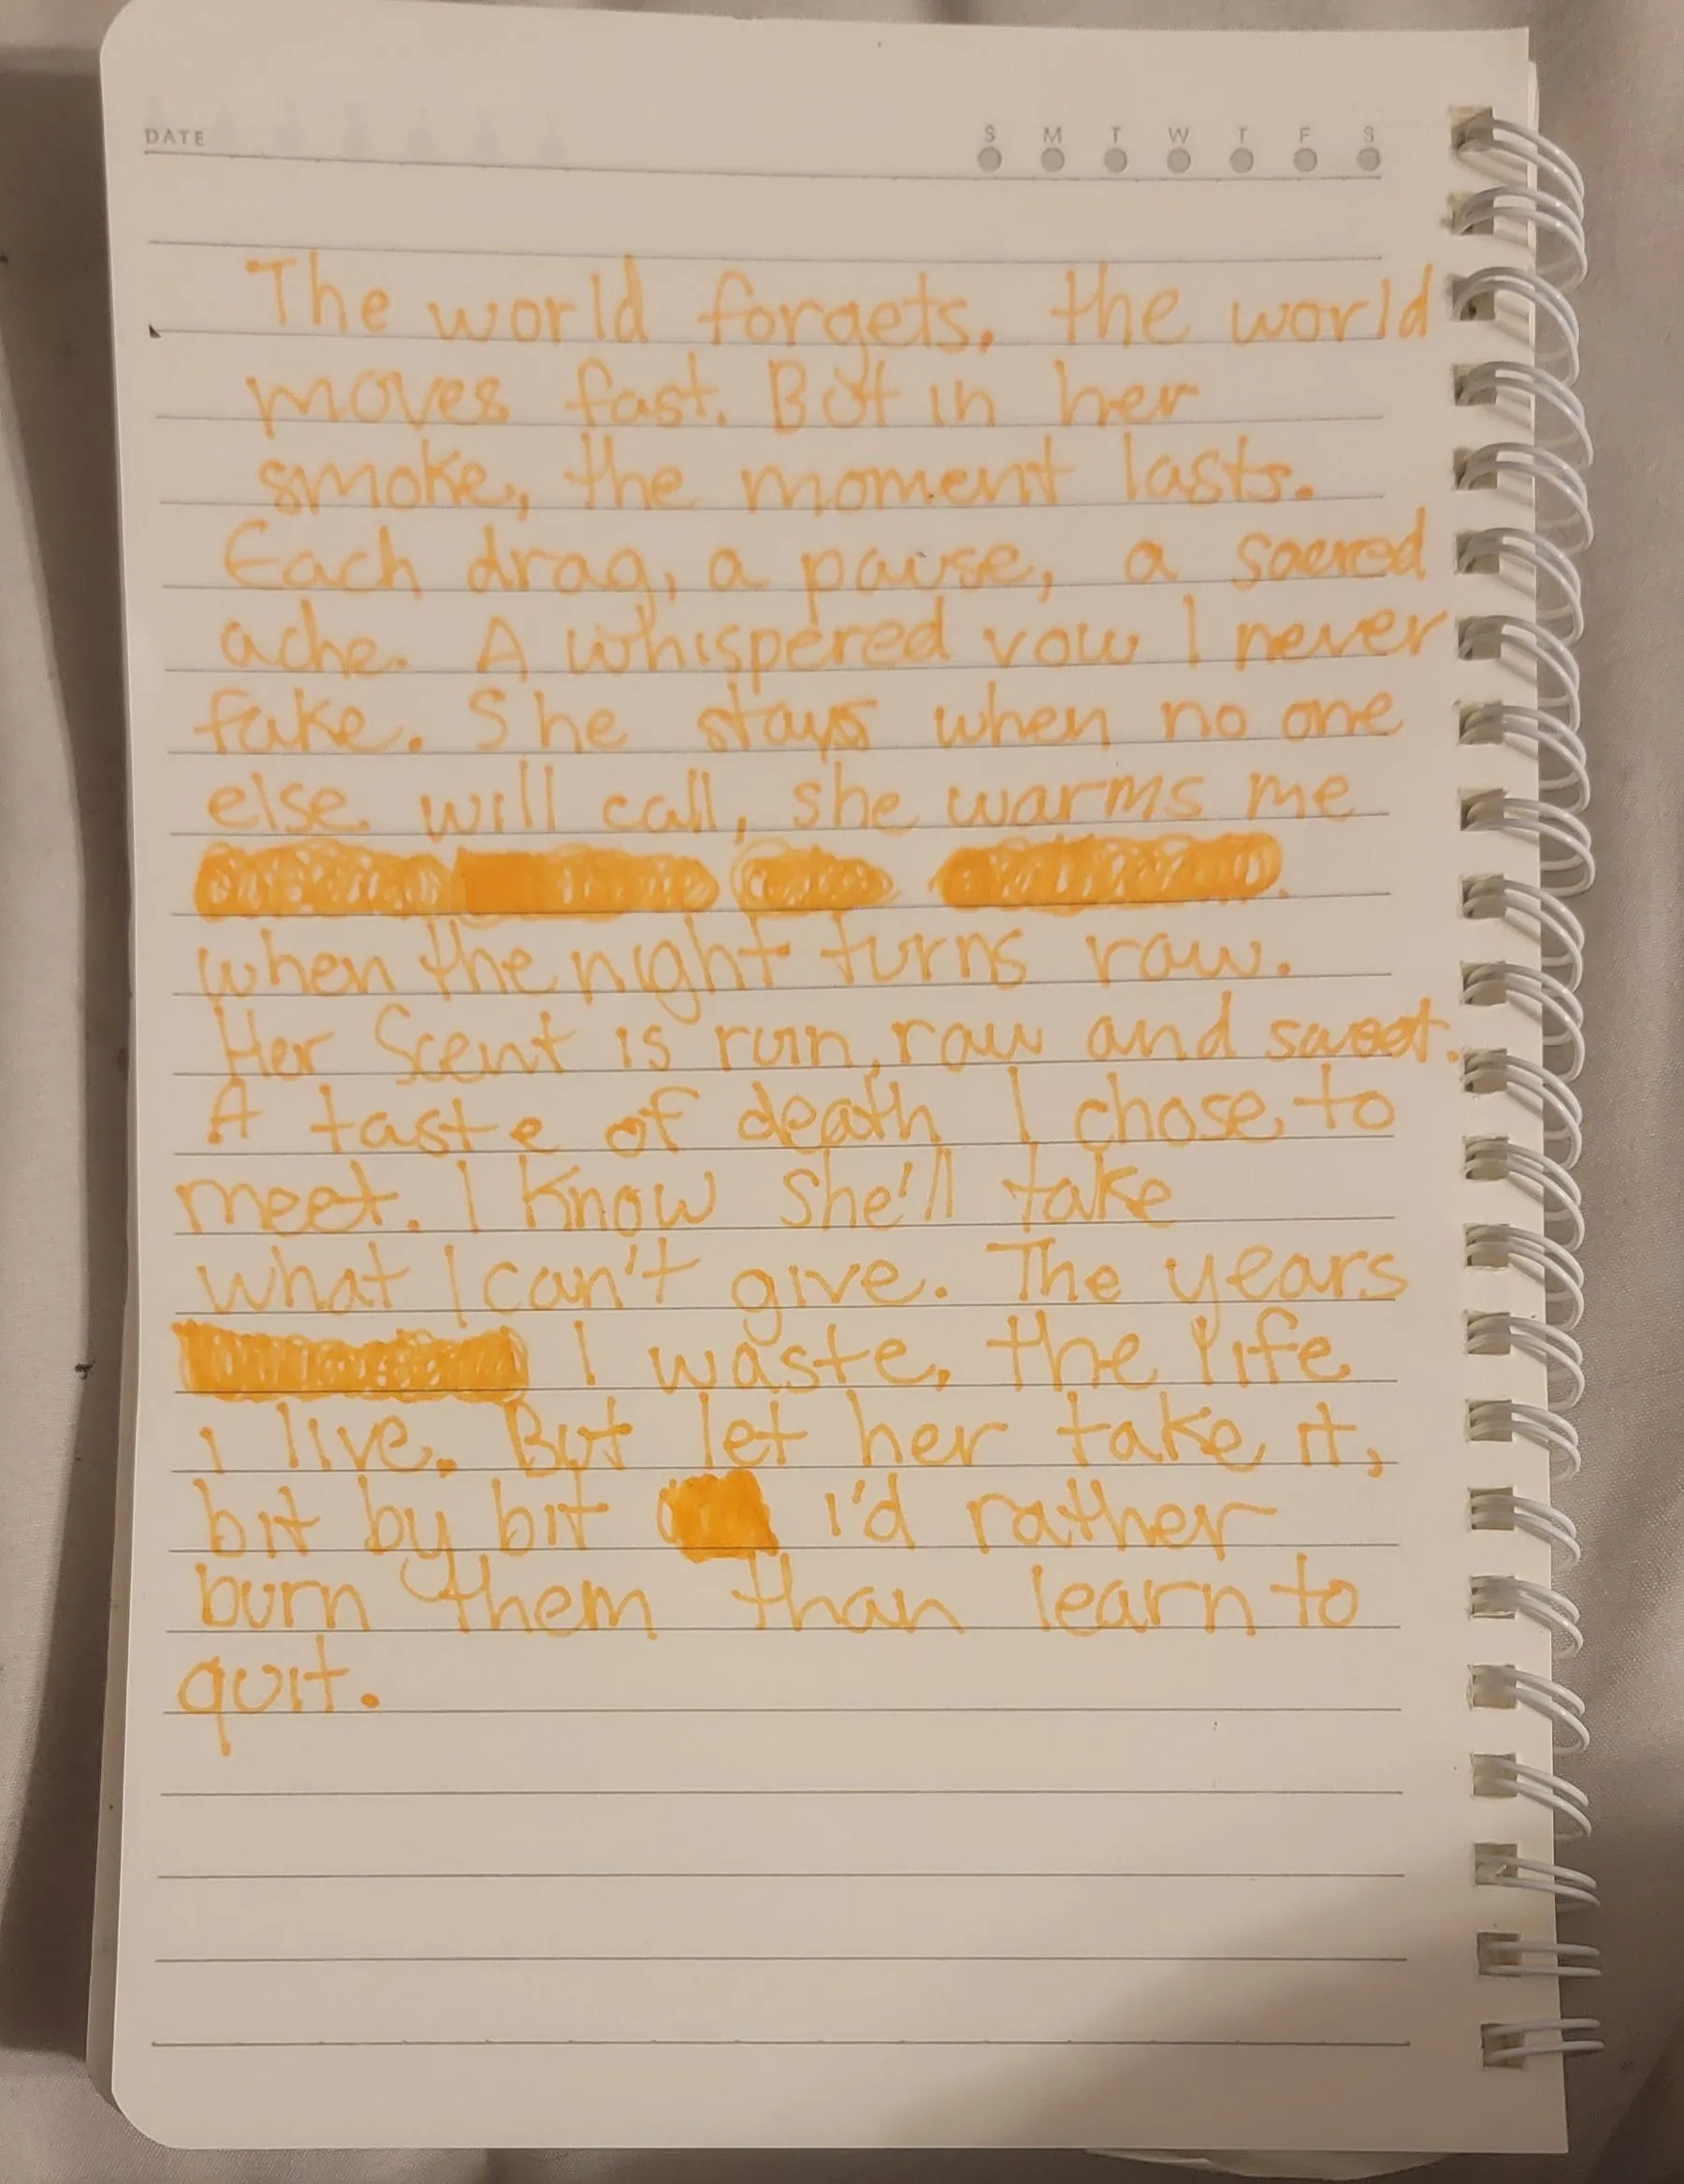 DATE S M T W T F S
The world forgets, the world
moves fast. But in her
smoke, the moment lasts.
Each drag, a pause, a sacred
ache. A whispered vow I never
fake. She stays when no one
else will call, she warms me
when the night turns raw.
Her Scent is ruin, raw and sweet.
A taste of death I chose to
meet. I know she'll take
what I can't give. The years
I waste, the life
i live. But let her take it,
bit by bit i'd rather
burn them than learn to
quit.